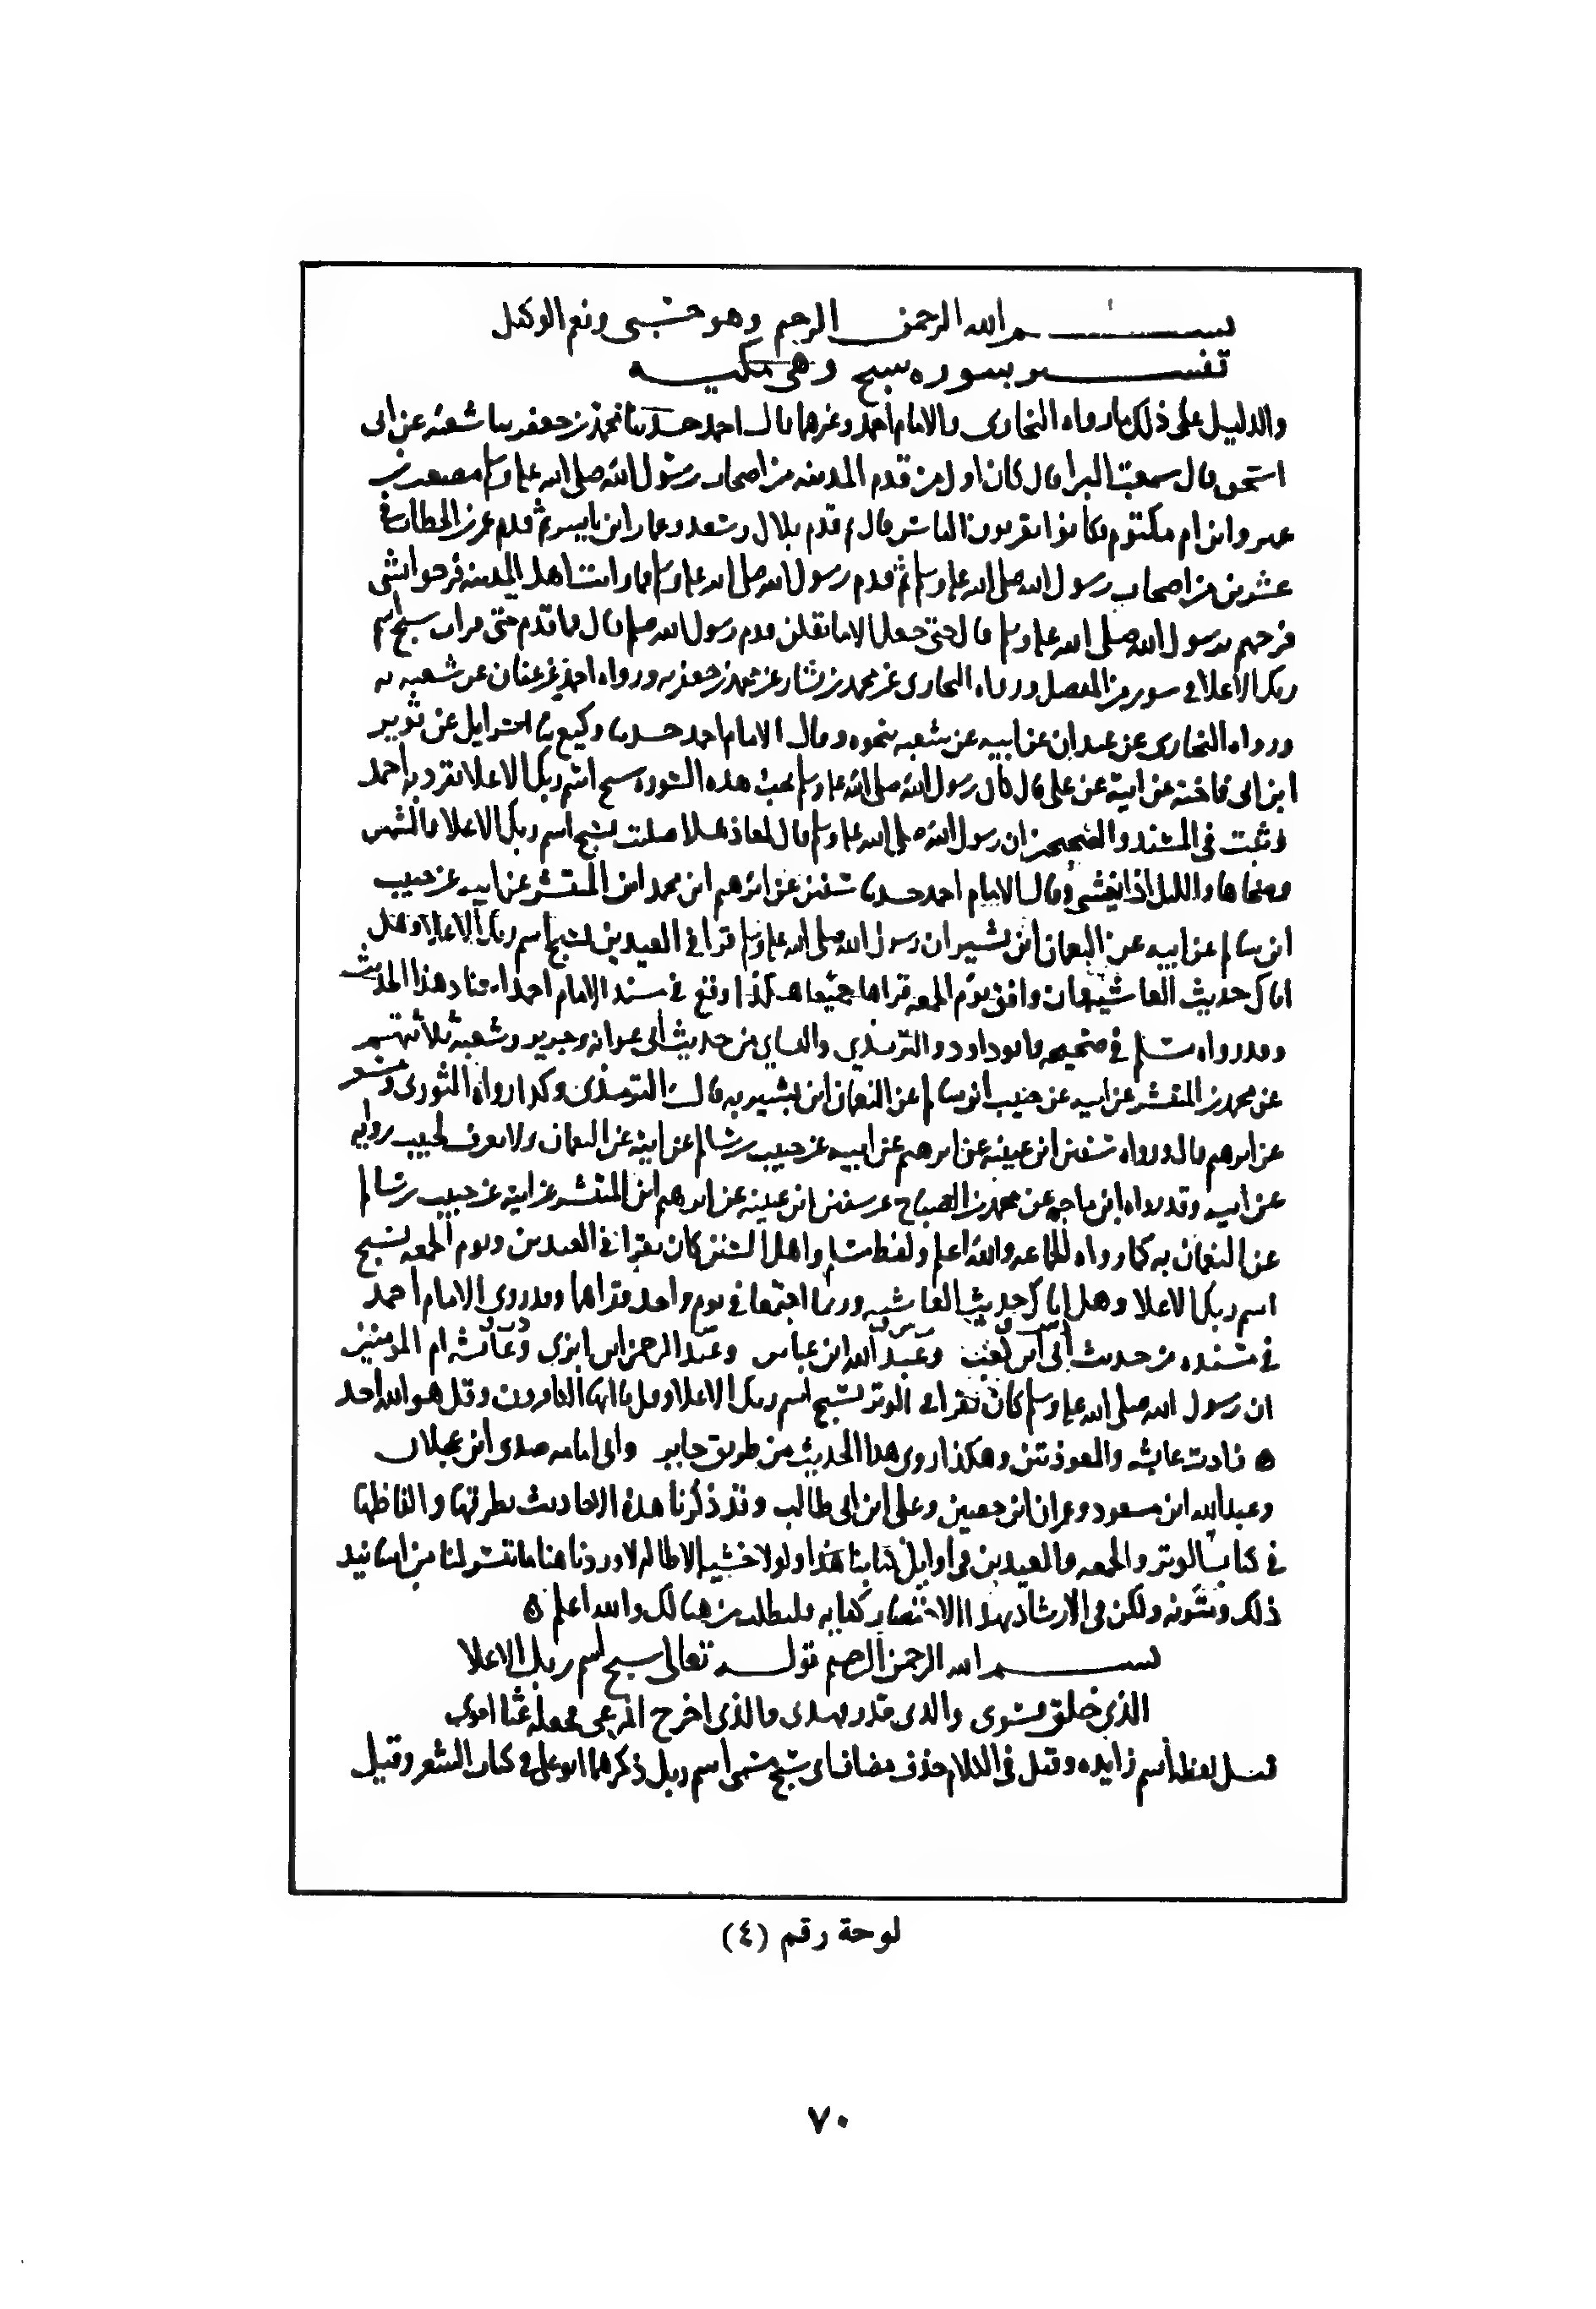 بسم الله الرحمن الرحيم وهو حسبي ونعم الوكيل
تفسير سوره سبح وهي مكيه
والدليل على ذلك ما رواه البخاري والامام احمد وغيرهما قال احمد حدثنا محمد بن جعفر ثنا شعبه عن ابي
اسحق قال سمعت البرا قال كان اول من قدم المدينه من اصحاب رسول الله صلى الله عليه وسلم مصعب بن
عمير وابن ام مكتوم فكانوا يقريون الناس قال ثم قدم بلال وسعد وعمار ابن ياسر ثم قدم عمر بن الخطاب في
عشرين من اصحاب رسول الله صلى الله عليه وسلم ثم قدم رسول الله صلى الله عليه وسلم فما رايت اهل المدينه فرحوا بشي
فرحهم برسول الله صلى الله عليه وسلم قال حتى جعل الاما يقلن قدم رسول الله صلم قال فما قدم حتى قرات سبح اسم
ربك الاعلا في سور من المفصل ورواه البخاري عن محمد بن بشار عن محمد بن جعفر به ورواه احمد عن عفان عن شعبه به
ورواه البخاري عن عبدان عن ابيه عن شعبه بنحوه وقال الامام احمد حدثنا وكيع ثنا اسرايل عن ثوير
ابن ابي فاخته عن ابيه عن علي قال كان رسول الله صلى الله عليه وسلم يحب هذه السوره سبح اسم ربك الاعلا تفرد به احمد
وثبت في المسند والصحيحين ان رسول الله صلى الله عليه وسلم قال لمعاذ هلا صليت بسبح اسم ربك الاعلا والشمس
وضحاها والليل اذا يغشى وقال الامام احمد حدثنا سفين عن ابرهيم ابن محمد ابن المنتشر عن ابيه عن حبيب
ابن سالم عن ابيه عن النعمان ابن بشير ان رسول الله صلى الله عليه وسلم قرا في العيدين بسبح اسم ربك الاعلا وهل
اتاك حديث الغاشيه وان وافق يوم الجمعه قراها جميعا هكذا وقع في مسند الامام احمد اسناد هذا الحديث
وقد رواه مسلم في صحيحه وابو داود والترمذي والنساي من حديث ابي عوانه وجرير وشعبه ثلاثتهم
عن محمد بن المنتشر عن ابيه عن حبيب ابن سالم عن النعمان ابن بشير به قال الترمذي وكذا رواه الثوري ومسعر
عن ابرهيم قال ورواه سفين ابن عيينه عن ابرهيم عن ابيه عن حبيب بن سالم عن ابيه عن النعمان ولا يعرف لحبيب روايه
عن ابيه وقد رواه ابن ماجه عن محمد بن الصباح عن سفين ابن عيينه عن ابرهيم ابن المنتشر عن ابيه عن حبيب بن سالم
عن النعمان به كما رواه الجماعه والله اعلم ولفظ مسلم واهل السنن كان يقرا في العيدين ويوم الجمعه بسبح
اسم ربك الاعلا وهل اتاك حديث الغاشيه وربما اجتمعا في يوم واحد فقراهما وقد روى الامام احمد
في مسنده من حديث ابي ابن كعب وعبد الله ابن عباس وعبد الرحمن ابن ابزي وعائشه ام المومنين
ان رسول الله صلى الله عليه وسلم كان يقرا في الوتر بسبح اسم ربك الاعلا وقل يا ايها الكافرون وقل هو الله احد
ه زادت عايشه والمعوذتين وهكذا روى هذا الحديث من طريق جابر وابي امامه صدي ابن عجلان
وعبد الله ابن مسعود وعمران ابن حصين وعلي ابن ابي طالب وقد ذكرنا هذه الاحاديث بطرقها والفاظها
في كتاب الوتر والجمعه والعيدين في اوايل كتابنا هذا ولولا خشيه الاطاله لاوردنا هنا ما تيسر لنا من اسانيد
ذلك ومتونه ولكن في الارشاد بهذا الاختصار كفايه فليطلب من هنالك والله اعلم ه
بسم الله الرحمن الرحيم قوله تعالى سبح اسم ربك الاعلا
الذي خلق فسوى والذي قدر فهدى والذي اخرج المرعى فجعله غثا احوى
قيل لفظ اسم زايده وقيل في الكلام حذف مضاف اي سبح مسمى اسم ربك ذكرهما ابو علي في كتاب الشعر وقيل
لوحة رقم (٤)
٧٠